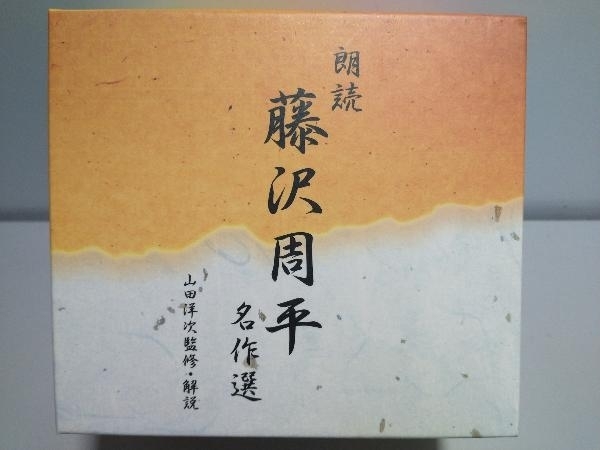 朗読
藤沢周平
名作選
山田洋次監修・解説